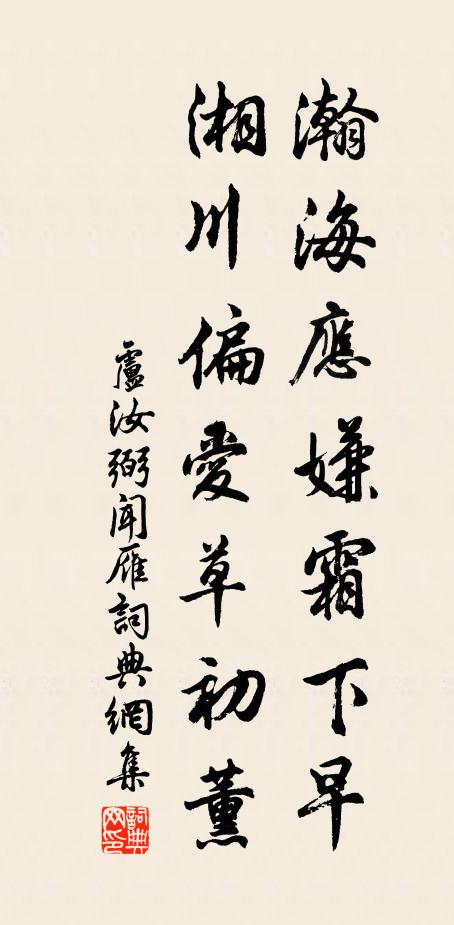 瀚海應嫌霜下早
湘川偏愛草初薰
盧汝弼聞雁詞典網集
詞典
网印